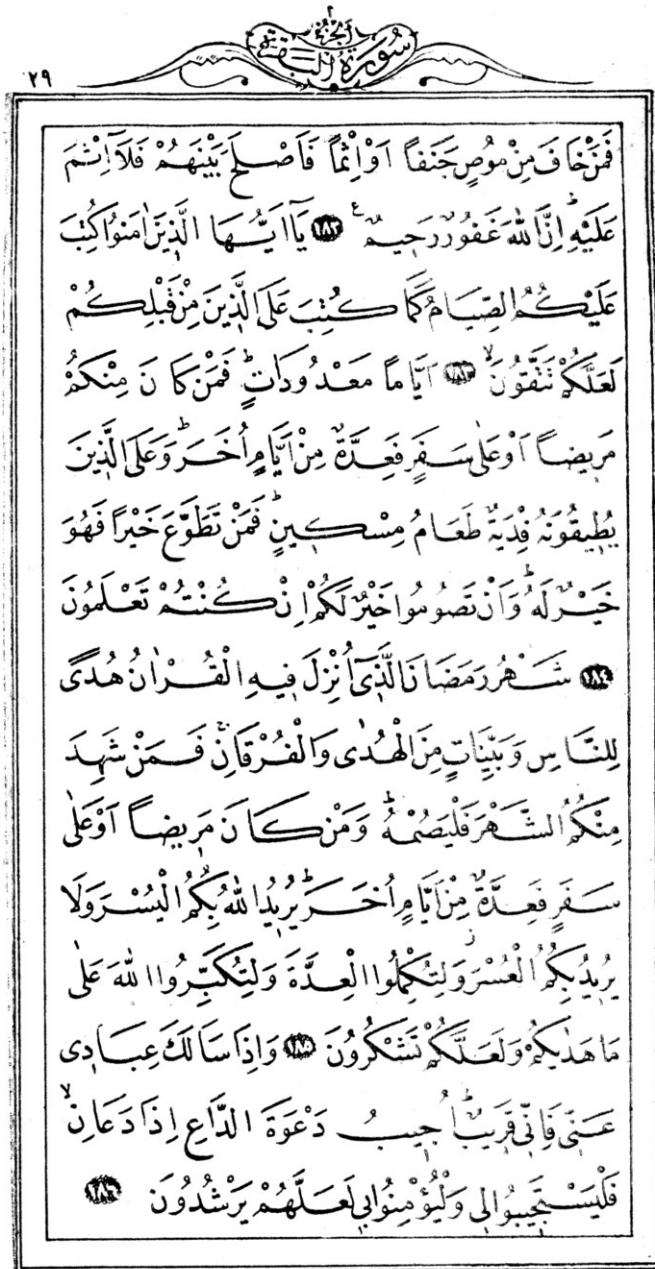 ٢
الجزء
سورة البقرة
٢٩
فَمَنْ خَافَ مِنْ مُوصٍ جَنَفاً اَوْ اِثْماً فَاَصْلَحَ بَيْنَهُمْ فَلَآ اِثْمَ
عَلَيْهِۜ اِنَّ اللهَ غَفُورٌ رَحِيمٌ ع ﴿١٨٢﴾ يَآ اَيُّهَا الَّذِينَ اٰمَنُوا كُتِبَ
عَلَيْكُمُ الصِّيَامُ كَمَا كُتِبَ عَلَى الَّذِينَ مِنْ قَبْلِكُمْ
لَعَلَّكُمْ تَتَّقُونَۙ ﴿١٨٣﴾ اَيَّاماً مَعْدُودَاتٍۜ فَمَنْ كَانَ مِنْكُمْ
مَرِيضاً اَوْ عَلٰى سَفَرٍ فَعِدَّةٌ مِنْ اَيَّامٍ اُخَرَۜ وَعَلَى الَّذِينَ
يُطِيقُونَهُ فِدْيَةٌ طَعَامُ مِسْكِينٍۜ فَمَنْ تَطَوَّعَ خَيْراً فَهُوَ
خَيْرٌ لَهُۜ وَاَنْ تَصُومُوا خَيْرٌ لَكُمْ اِنْ كُنْتُمْ تَعْلَمُونَ
﴿١٨٤﴾ شَهْرُ رَمَضَانَ الَّذِىٓ اُنْزِلَ فِيهِ الْقُرْاٰنُ هُدًى
لِلنَّاسِ وَبَيِّنَاتٍ مِنَ الْهُدٰى وَالْفُرْقَانِۚ فَمَنْ شَهِدَ
مِنْكُمُ الشَّهْرَ فَلْيَصُمْهُۜ وَمَنْ كَانَ مَرِيضاً اَوْ عَلٰى
سَفَرٍ فَعِدَّةٌ مِنْ اَيَّامٍ اُخَرَۜ يُرِيدُ اللهُ بِكُمُ الْيُسْرَ وَلَا
يُرِيدُ بِكُمُ الْعُسْرَ وَلِتُكْمِلُوا الْعِدَّةَ وَلِتُكَبِّرُوا اللهَ عَلٰى
مَا هَدٰيكُمْ وَلَعَلَّكُمْ تَشْكُرُونَ ﴿١٨٥﴾ وَاِذَا سَاَلَكَ عِبَادِى
عَنِّى فَاِنِّى قَرِيبٌۜ اُجِيبُ دَعْوَةَ الدَّاعِ اِذَا دَعَانِۙ
فَلْيَسْتَجِيبُوا لِى وَلْيُؤْمِنُوا بِى لَعَلَّهُمْ يَرْشُدُونَ ﴿١٨٦﴾